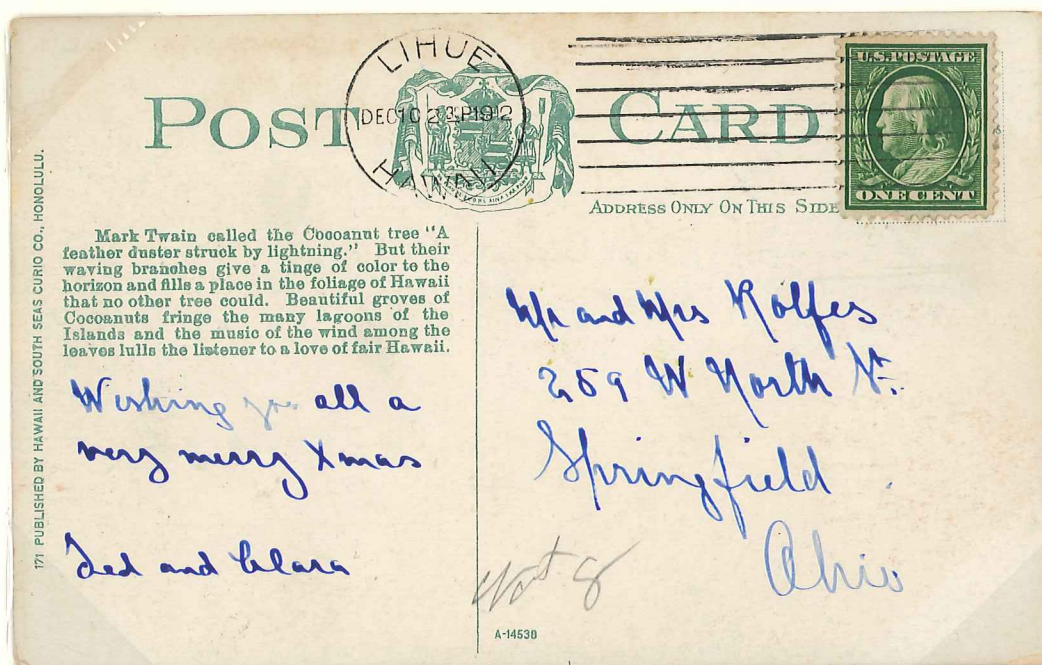 POST CARD
LIHUE
DEC 10 2 3-P 1912
HAWAII
U.S. POSTAGE
ONE CENT
ADDRESS ONLY ON THIS SIDE
171 PUBLISHED BY HAWAII AND SOUTH SEAS CURIO CO., HONOLULU.
Mark Twain called the Cocoanut tree "A
feather duster struck by lightning." But their
waving branches give a tinge of color to the
horizon and fills a place in the foliage of Hawaii
that no other tree could. Beautiful groves of
Cocoanuts fringe the many lagoons of the
Islands and the music of the wind among the
leaves lulls the listener to a love of fair Hawaii.
Wishing you all a
very merry Xmas
Ted and Clara
Mr and Mrs Rolfes
259 W North St.
Springfield
Ohio
8
A-14530